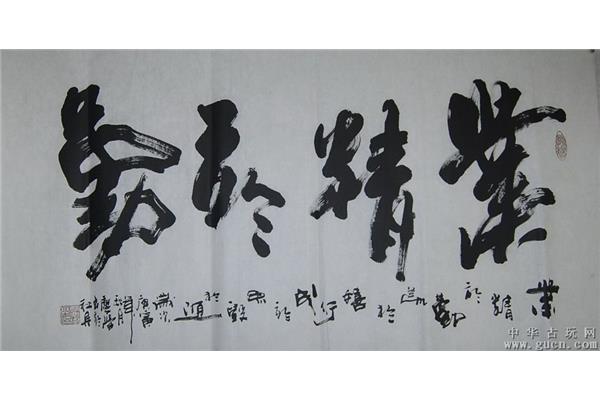 業精於勤
業精於勤荒於嬉行成於思毀於隨
歲次庚寅
中华古玩网
www.gucn.com